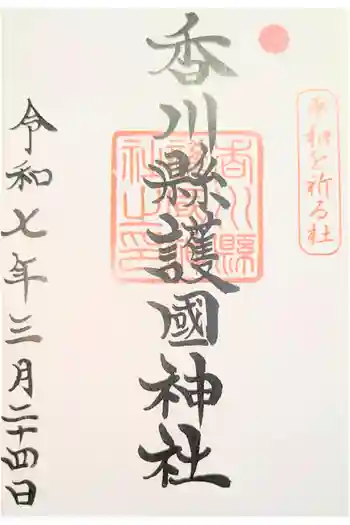 平和を祈る社
香川縣護國神社
香川縣
護國神
社之印
令和七年三月二十四日